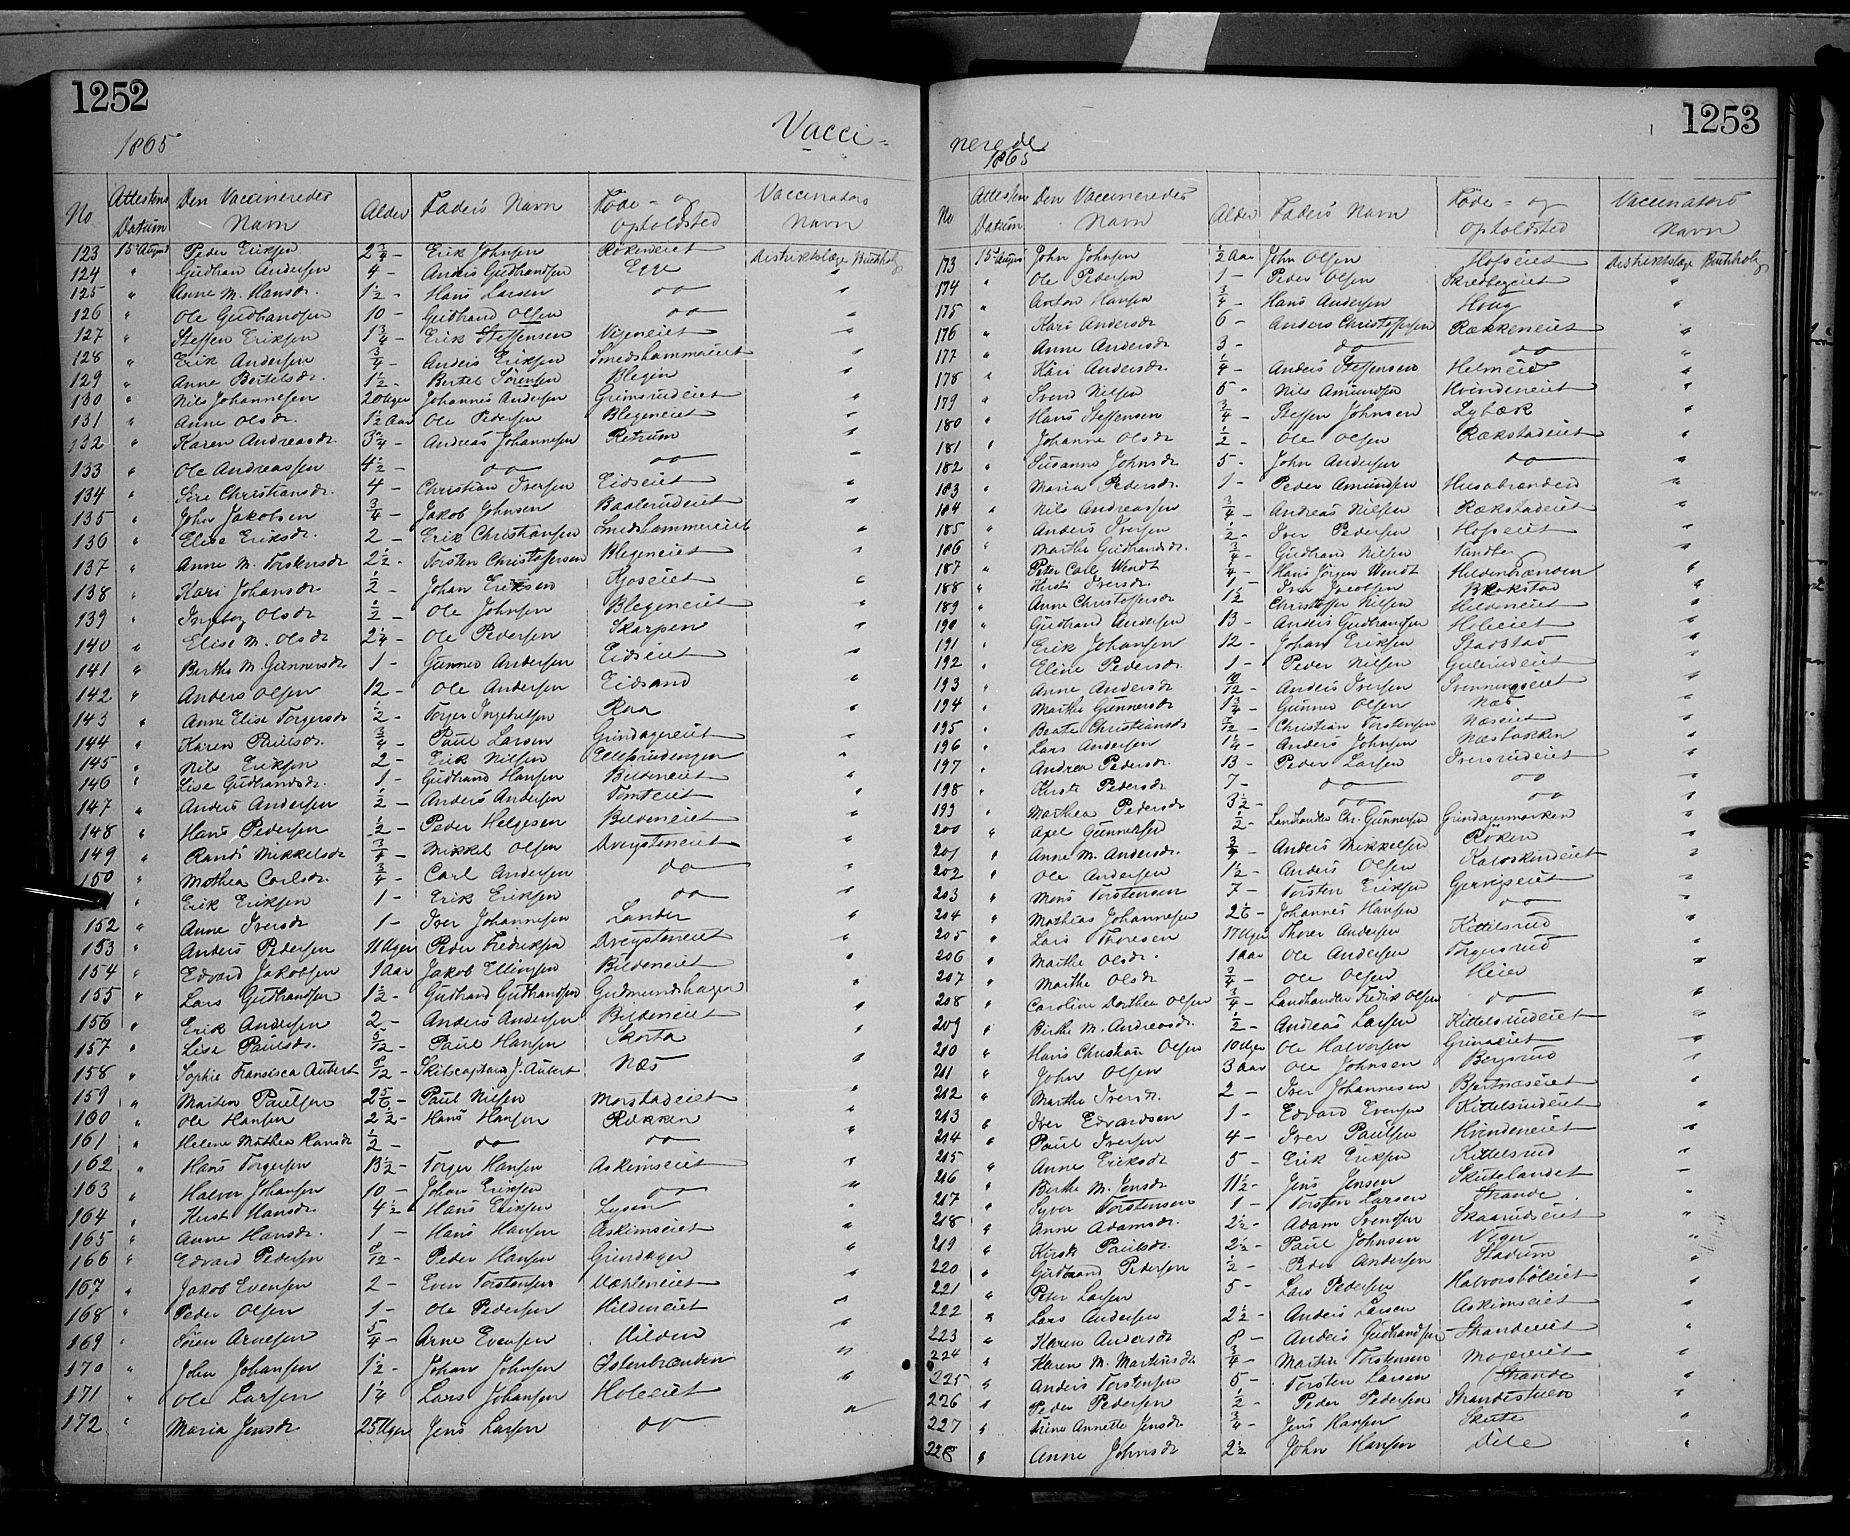 1252
1865
Vacci-
No Attestens Datum Den Vaccineredes Navn Alder Faders Navn Føde- og Opholdsted Vaccinators Navn
123 15 August Peder Eriksen 2 3/4 Erik Johnsen Røkeneiet Distriktslæge Buchholz
124 " Gudbran Andersen 4 - Anders Gudbrandsen Egge "
125 " Anne M. Hansdr. 1 1/2 - Hans Larsen do "
126 " Ole Gudbrandsen 10 - Gudbrand Olsen do "
127 " Steffen Eriksen 1 3/4 - Erik Steffensen Vigeneiet "
128 " Erik Andersen 3/4 - Anders Eriksen Smedshammereiet "
129 " Anne Bertelsdr. 1 1/2 - Bertel Sørensen Blegen "
130 " Nils Johannesen 20 Uger Johannes Andersen Grimsrudeiet "
131 " Anne Olsdr. 1 1/2 Aar Ole Pedersen Blegeneiet "
132 " Karen Andreasdr. 3 3/4 - Andreas Johannesen Retrum "
133 " Ole Andreassen 4 1/2 - do do "
134 " Sire Christiansdr. 4 - Christian Iversen Eidseiet "
135 " John Jakobsen 3/4 - Jakob Johnsen Baalerudeiet "
136 " Elise Eriksdr. 2 - Erik Christiansen Smedshammereiet "
137 " Anne M. Torstensdr 2 1/2 - Torsten Christoffersen Blegeneiet "
138 " Kari Johansdr. 1/2 - Johan Eriksen Kjoseiet "
139 " Ingeborg Olsdr 1/2 - Ole Johnsen Blegeneiet "
140 " Elise M. Olsdr 2 1/4 - Ole Pedersen Skarpen "
141 " Berthe M. Gunnersdr 1 - Gunner Andersen Eidseiet "
142 " Anders Olsen 12 - Ole Andersen Eidsand "
143 " Anne Elise Torgersdr 1/2 - Torger Ingebretsen Raa "
144 " Karen Paulsdr. 3/4 - Paul Larsen Grindagereiet "
145 " Nils Eriksen 2 - Erik Nilsen "
146 " Lise Gudbrandsdr. 1 - Gudbrand Hansen Bildeneiet "
147 " Anders Andersen 1/2 - Anders Andersen Tomteiet "
148 " Hans Pedersen 1/2 - Peder Helgesen Bildeneiet "
149 " Randi Mikkelsdr 3/4 - Mikkel Olsen Drøysteneiet "
150 " Mathea Carlsdr. 3/4 - Carl Andersen do "
" Erik Eriksen 1 - Erik Eriksen do "
152 " Anne Iversdr 1 - Iver Johannesen Lander "
153 " Anders Pedersen 11 Uger Peder Fredriksen Drøysteneiet "
154 " Edvard Jakobsen 1 Aar Jakob Ellingsen Bildeneiet "
155 " Lars Gudbrandsen 1 1/2 - Gudbrand Gudbrandsen Gudmundshagen "
156 " Erik Andersen 2 - Anders Andersen Bildeneiet "
157 " Lise Paulsdr. 5/12 - Paul Hansen Skorta "
158 " Sophie Francisca Aubert 8/12 - Skibscaptain J. Aubert Næs "
159 " Marten Paulsen 2 5/6 - Paul Nilsen Morstadeiet "
160 " Ole Hansen 2 1/2 - Hans Hansen Røkken "
161 " Helene Mathea Hansdr 1/2 - do do "
162 " Hans Torgersen 13 1/2 - Torger Hansen Askimseiet "
163 " Halvor Johansen 10 - Johan Eriksen do "
164 " Kirsti Hansdr. 4 1/2 - Hans Eriksen Lysen "
165 " Anne Hansdr. 1 - Hans Hansen Askimseiet "
166 " Edvard Pedersen 8/12 - Peder Hansen Grindager "
167 " Jakob Evensen 2 - Even Torstensen "
168 " Peder Olsen 1 - Ole Pedersen Hildeneiet "
169 " Søren Arnesen 5/4 - Arne Evensen Hilden "
170 " John Johansen 1 1/2 - Johan Johnsen Østenbrænden "
171 " Ole Larsen 1 1/4 Lars Johansen Holeeiet "
172 " Maria Jensdr 25 Uger Jens Larsen do "
1253
nerede
1865
No Attestens Datum Den Vaccineredes Navn Alder Faders Navn Føde- og Opholdsted Vaccinators Navn
173 15 August John Johnsen 1/2 Aar John Olsen Hofseiet Distriktslæge Buchholz
174 " Ole Pedersen 1 - Peder Olsen Skredbøeiet "
175 " Anton Hansen 3/4 - Hans Andersen Houg "
176 " Kari Andersdr 6 - Anders Christoffersen Røkkeneiet "
177 " Anne Andersdr 3 - do do "
178 " Kari Andersdr. 1/4 - Anders Steffensen Helmeid "
179 " Svend Nilsen 5 - Nils Amundsen Hvindeneiet "
180 " Hans Steffensen 3/4 - Steffen Johnsen Lybæk "
181 " Johanne Olsdr 1/2 - Ole Olsen Rækstadeiet "
182 " Susanne Johnsdr 5 - John Andersen do "
183 " Maria Pedersdr. 1 - Peder Amundsen Husebrænden "
184 " Nils Andreassen 3/4 - Andreas Nilsen Rækstadeiet "
185 " Anders Iversen 1/2 - Iver Pedersen Hofseiet "
186 " Marthe Gudbrandsdr. 3/4 - Gudbrand Nilsen Sandler "
187 " Peter Carl Wendt 1/4 - Hans Jørgen Wendt Hildenbrænden "
188 " Kirsti Iversdr. 1 - Iver Jacobsen "
189 " Anne Christoffersdr 1 1/2 Christoffer Nilsen Hildeneiet "
190 " Gudbrand Andersen 13 - Anders Gudbrandsen Holeeiet "
191 " Erik Johansen 12 - Johan Eriksen Stadstad "
192 " Eline Pedersdr 1 - Peder Nilsen Gulerudeiet "
193 " Anne Andersdr 10/12 - Anders Iversen Svenningseiet "
194 " Marthe Gunnersdr 1 3/4 - Gunner Olsen Næs "
195 " Beate Christiansdr 7/12 - Christian Torstensen Næseiet "
196 " Lars Andersen 1 1/4 - Anders Johnsen Næsbakken "
197 " Andrea Pedersdr. 13 - Peder Larsen Iversrudeiet "
198 " Kirsti Pedersdr 7 - do do "
199 " Marthea Pedersdr 3 1/2 - do do "
200 " Axel Gunnersen 1/2 - Landhandler Chr. Gunnersen Grindagermarken "
201 " Anne M. Andersdr. 3/4 - Anders Mikkelsen Røken "
202 " Ole Andersen 1 1/2 - Anders Olsen "
203 " Mons Torstensen 7 - Torsten Eriksen Gjervigseiet "
204 " Mathias Johannesen 2 1/6 - Johannes Hansen do "
205 " Lars Thoresen 17 Uger Thorer Andersen Kittelsrud "
206 " Marthe Olsdr. 1 Aar Ole Andersen Torgersrud "
207 " Marthe Olsdr 3/4 - Ole Olsen Heier "
208 " Caroline Dorthea Olsen 3/4 - Landhandler Fredrik Olsen do "
209 " Birthe M. Andreasdr. 1/2 - Andreas Larsen Kittelsrudeiet "
210 " Hans Christian Olsen 10 Uger Ole Halvorsen Grinaeiet "
211 " John Olsen 3 Aar Ole Johnsen Bergsrud "
212 " Marthe Iversdr. 2 - Iver Johannesen Bjertnæseiet "
213 " Iver Edvardsen 1 - Edvard Evensen Kittelsrudeiet "
214 " Paul Iversen 4 - Iver Paulsen Hvindeneiet "
215 " Anne Eriksdr 5 - Erik Eriksen Kittelsrud "
216 " Berthe M. Jensdr 11 1/2 - Jens Jensen Skutelandet "
217 " Syver Torstensen 1 - Torsten Larsen Strande "
218 " Anne Adamsdr. 2 1/2 - Adam Svendsen Skaarudseiet "
219 " Kirsti Paulsdr. 2 1/2 - Paul Johnsen Viger "
220 " Gudbrand Pedersen 1/2 - Peder Andersen Stadum "
221 " Peter Larsen 5 - Lars Pedersen Halvorsbøleiet "
222 " Lars Andersen 2 1/2 - Anders Larsen Askimseiet "
223 " Karen Andersdr 8 - Anders Gudbrandsen Strandeeiet "
224 " Karen M. Martinsdr 3/4 - Martin Torstensen Moeneiet "
225 " Anders Torstensen 5 - Torsten Larsen Strande "
226 " Peder Pedersen 1/2 - Peder Pedersen "
227 " Trine Annette Jensdr 3/4 - Jens Hansen Skute "
228 " Anne Johnsdr 2 1/2 John Hansen "